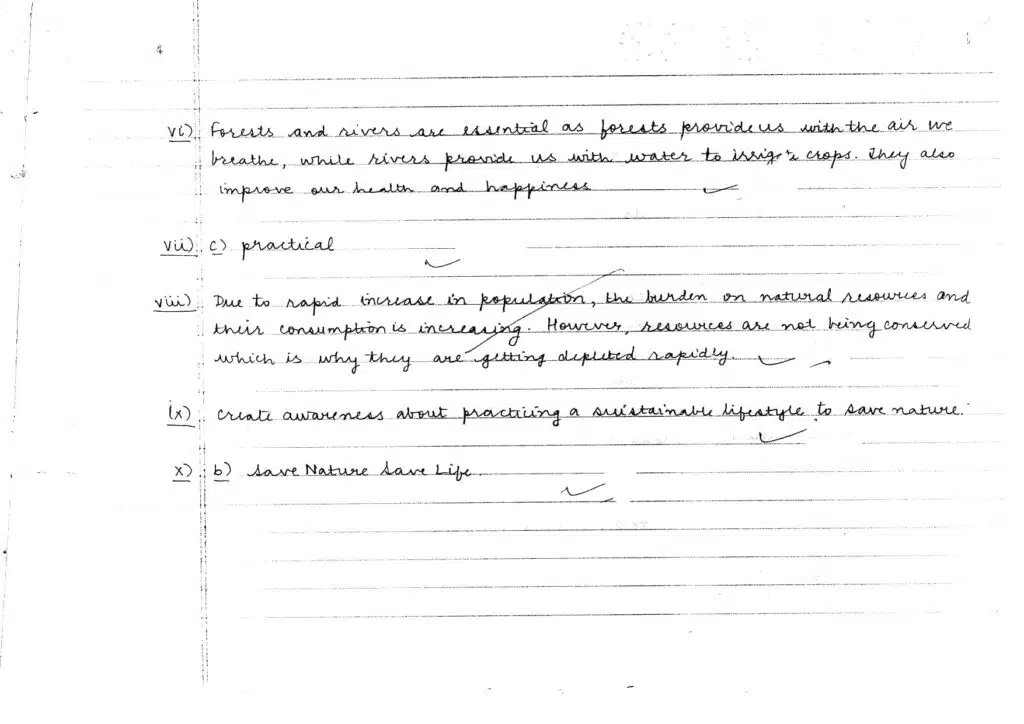 vi) Forests and rivers are essential as forests provide us with the air we
breathe, while rivers provide us with water to crops. They also
improve our health and happiness
vii) c) practical
viii) Due to rapid increase in population, the burden on natural resources and
their consumption is increasing. However, resources are not being conserved
which is why they are getting depleted rapidly.
ix) Create awareness about practicing a sustainable lifestyle to save nature.
x) b) Save Nature Save Life.